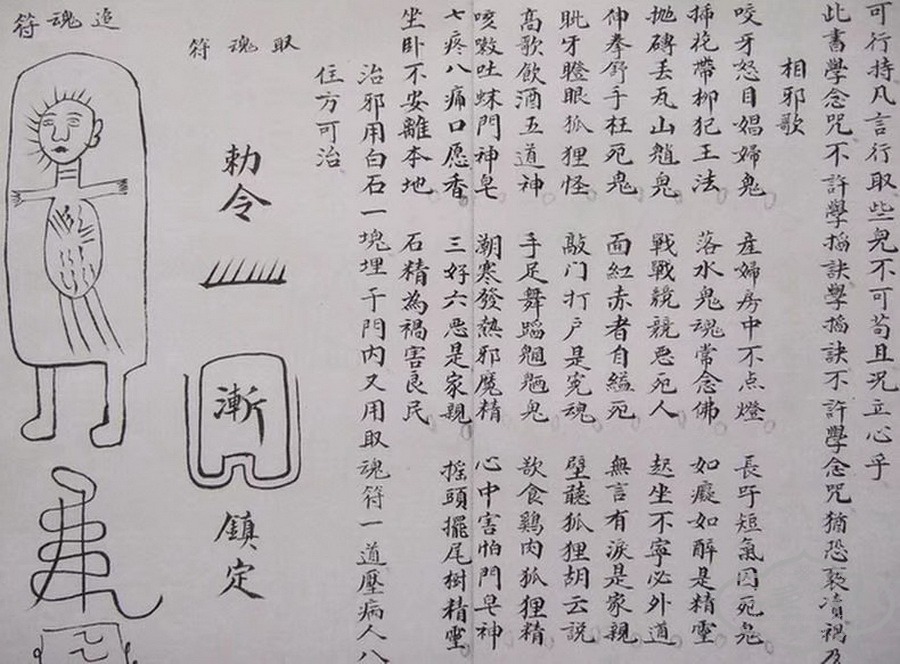 可行持凡言行取些兒不可苟且况立心乎
此書學念咒不許學搯訣學搯訣不許學念咒猶恐褻凟禍及
相邪歌
咬牙怒目娼婦鬼 産婦房中不点燈 長吁短氣因死鬼
插花帶柳犯王法 落水鬼魂常念佛 如癡如醉是精靈
抛磚丢瓦山魈鬼 戰戰兢兢惡死人 起坐不寧必外道
伸拳舒手枉死鬼 面紅赤者自縊死 無言有淚是家親
眦牙瞪眼狐狸怪 敲门打户是冤魂 壁聽狐狸胡云説
高歌飲酒五道神 手足舞蹈魍魎鬼 欲食鷄肉狐狸精
咳嗽吐蛛門神皂 潮寒發熱邪魔精 心中害怕門皂神
七疼八痛口愿香 三好六惡是家親 摇頭擺尾樹精靈
坐卧不安離本地 石精為禍害良民
治邪用白石一塊埋于門内又用取魂符一道壓病人八
住方可治
取魂符
勅令
漸
鎮定
追魂符